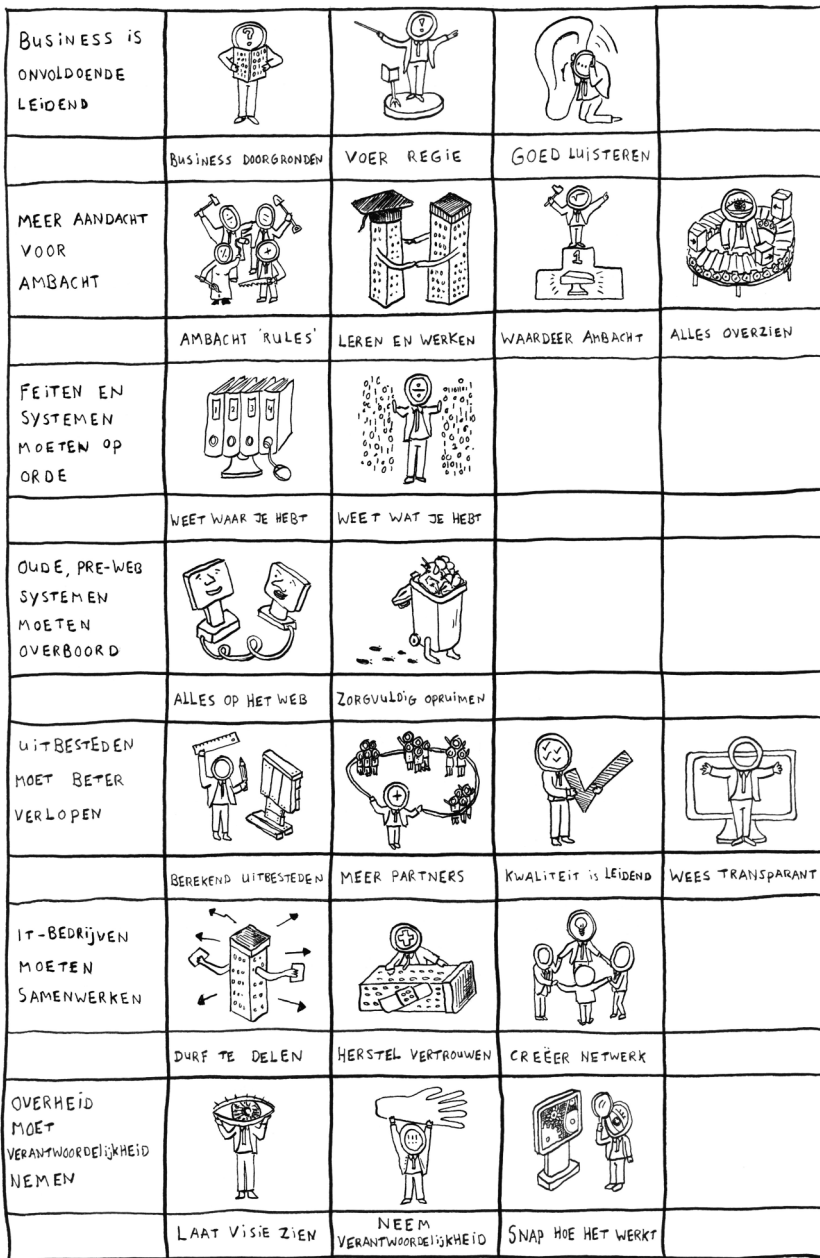 BUSINESS IS
ONVOLDOENDE
LEIDEND
BUSINESS DOORGRONDEN
VOER REGIE
GOED LUISTEREN
MEER AANDACHT
VOOR
AMBACHT
AMBACHT 'RULES'
LEREN EN WERKEN
1
WAARDEER AMBACHT
ALLES OVERZIEN
FEITEN EN
SYSTEMEN
MOETEN OP
ORDE
1 2 3 4
WEET WAAR JE HEBT
WEET WAT JE HEBT
OUDE, PRE-WEB
SYSTEMEN
MOETEN
OVERBOORD
ALLES OP HET WEB
ZORGVULDIG OPRUIMEN
UITBESTEDEN
MOET BETER
VERLOPEN
BEREKEND UITBESTEDEN
MEER PARTNERS
KWALITEIT IS LEIDEND
WEES TRANSPARANT
IT-BEDRIJVEN
MOETEN
SAMENWERKEN
DURF TE DELEN
HERSTEL VERTROUWEN
CREËER NETWERK
OVERHEID
MOET
VERANTWOORDELIJKHEID
NEMEN
LAAT VISIE ZIEN
NEEM
VERANTWOORDELIJKHEID
SNAP HOE HET WERKT